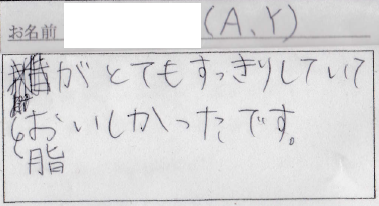 お名前 (A、Y)
がとてもすっきりしていて
おいしかったです。
脂